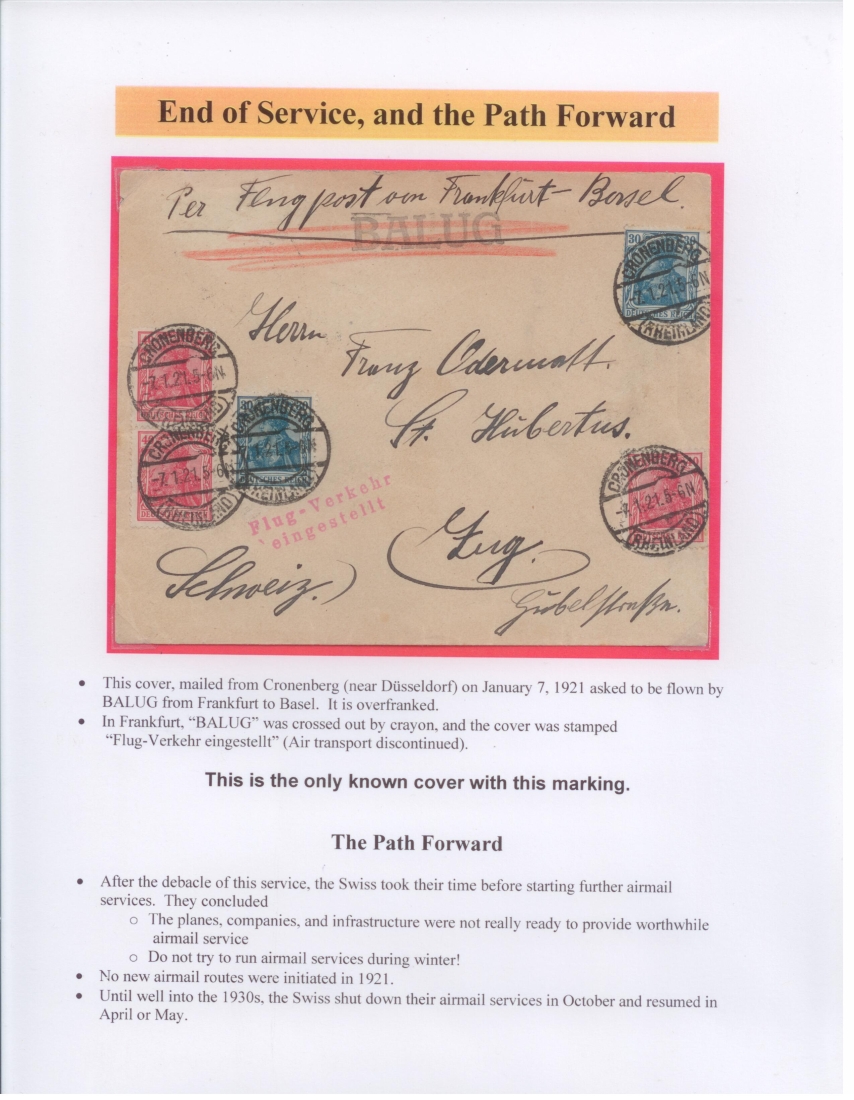 End of Service, and the Path Forward
Per Flugpost von Frankfurt - Basel.
BALUG
30 30
CRONENBERG
-7.1.21.5-6N
(RHEINLAND)
DEUTSCHES REICH
Herrn
Franz Odermatt.
St. Hubertus.
CRONENBERG
-7.1.21.5-6N
(RHEINLAND)
DEUTSCHES REICH
30
CRONENBERG
7.1.21.5-6N
(RHEINLAND)
DEUTSCHES REICH
40
CRONENBERG
-7.1.21.5-6N
(RHEINLAND)
CRONENBERG
-7.1.21.5-6N
(RHEINLAND)
Flug-Verkehr
eingestellt
Zug.
Schweiz.)
Gubelstraße.
• This cover, mailed from Cronenberg (near Düsseldorf) on January 7, 1921 asked to be flown by
BALUG from Frankfurt to Basel. It is overfranked.
• In Frankfurt, “BALUG” was crossed out by crayon, and the cover was stamped
“Flug-Verkehr eingestellt” (Air transport discontinued).
This is the only known cover with this marking.
The Path Forward
• After the debacle of this service, the Swiss took their time before starting further airmail
services. They concluded
o The planes, companies, and infrastructure were not really ready to provide worthwhile
airmail service
o Do not try to run airmail services during winter!
• No new airmail routes were initiated in 1921.
• Until well into the 1930s, the Swiss shut down their airmail services in October and resumed in
April or May.